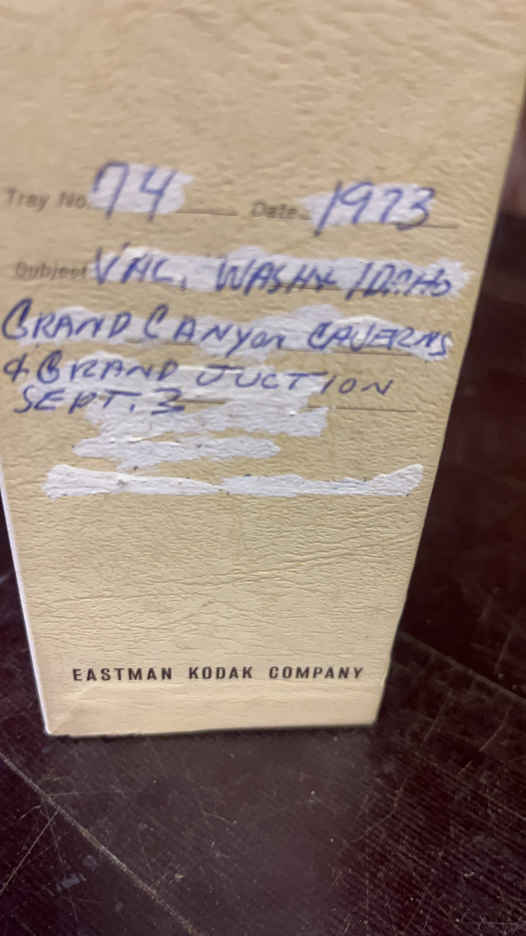 Tray No. 74 Date 1973
Subject VAC, WASH & IDAHO
GRAND CANyon CAVERNS
& GRAND JUCTION
SEPT. 3
EASTMAN KODAK COMPANY